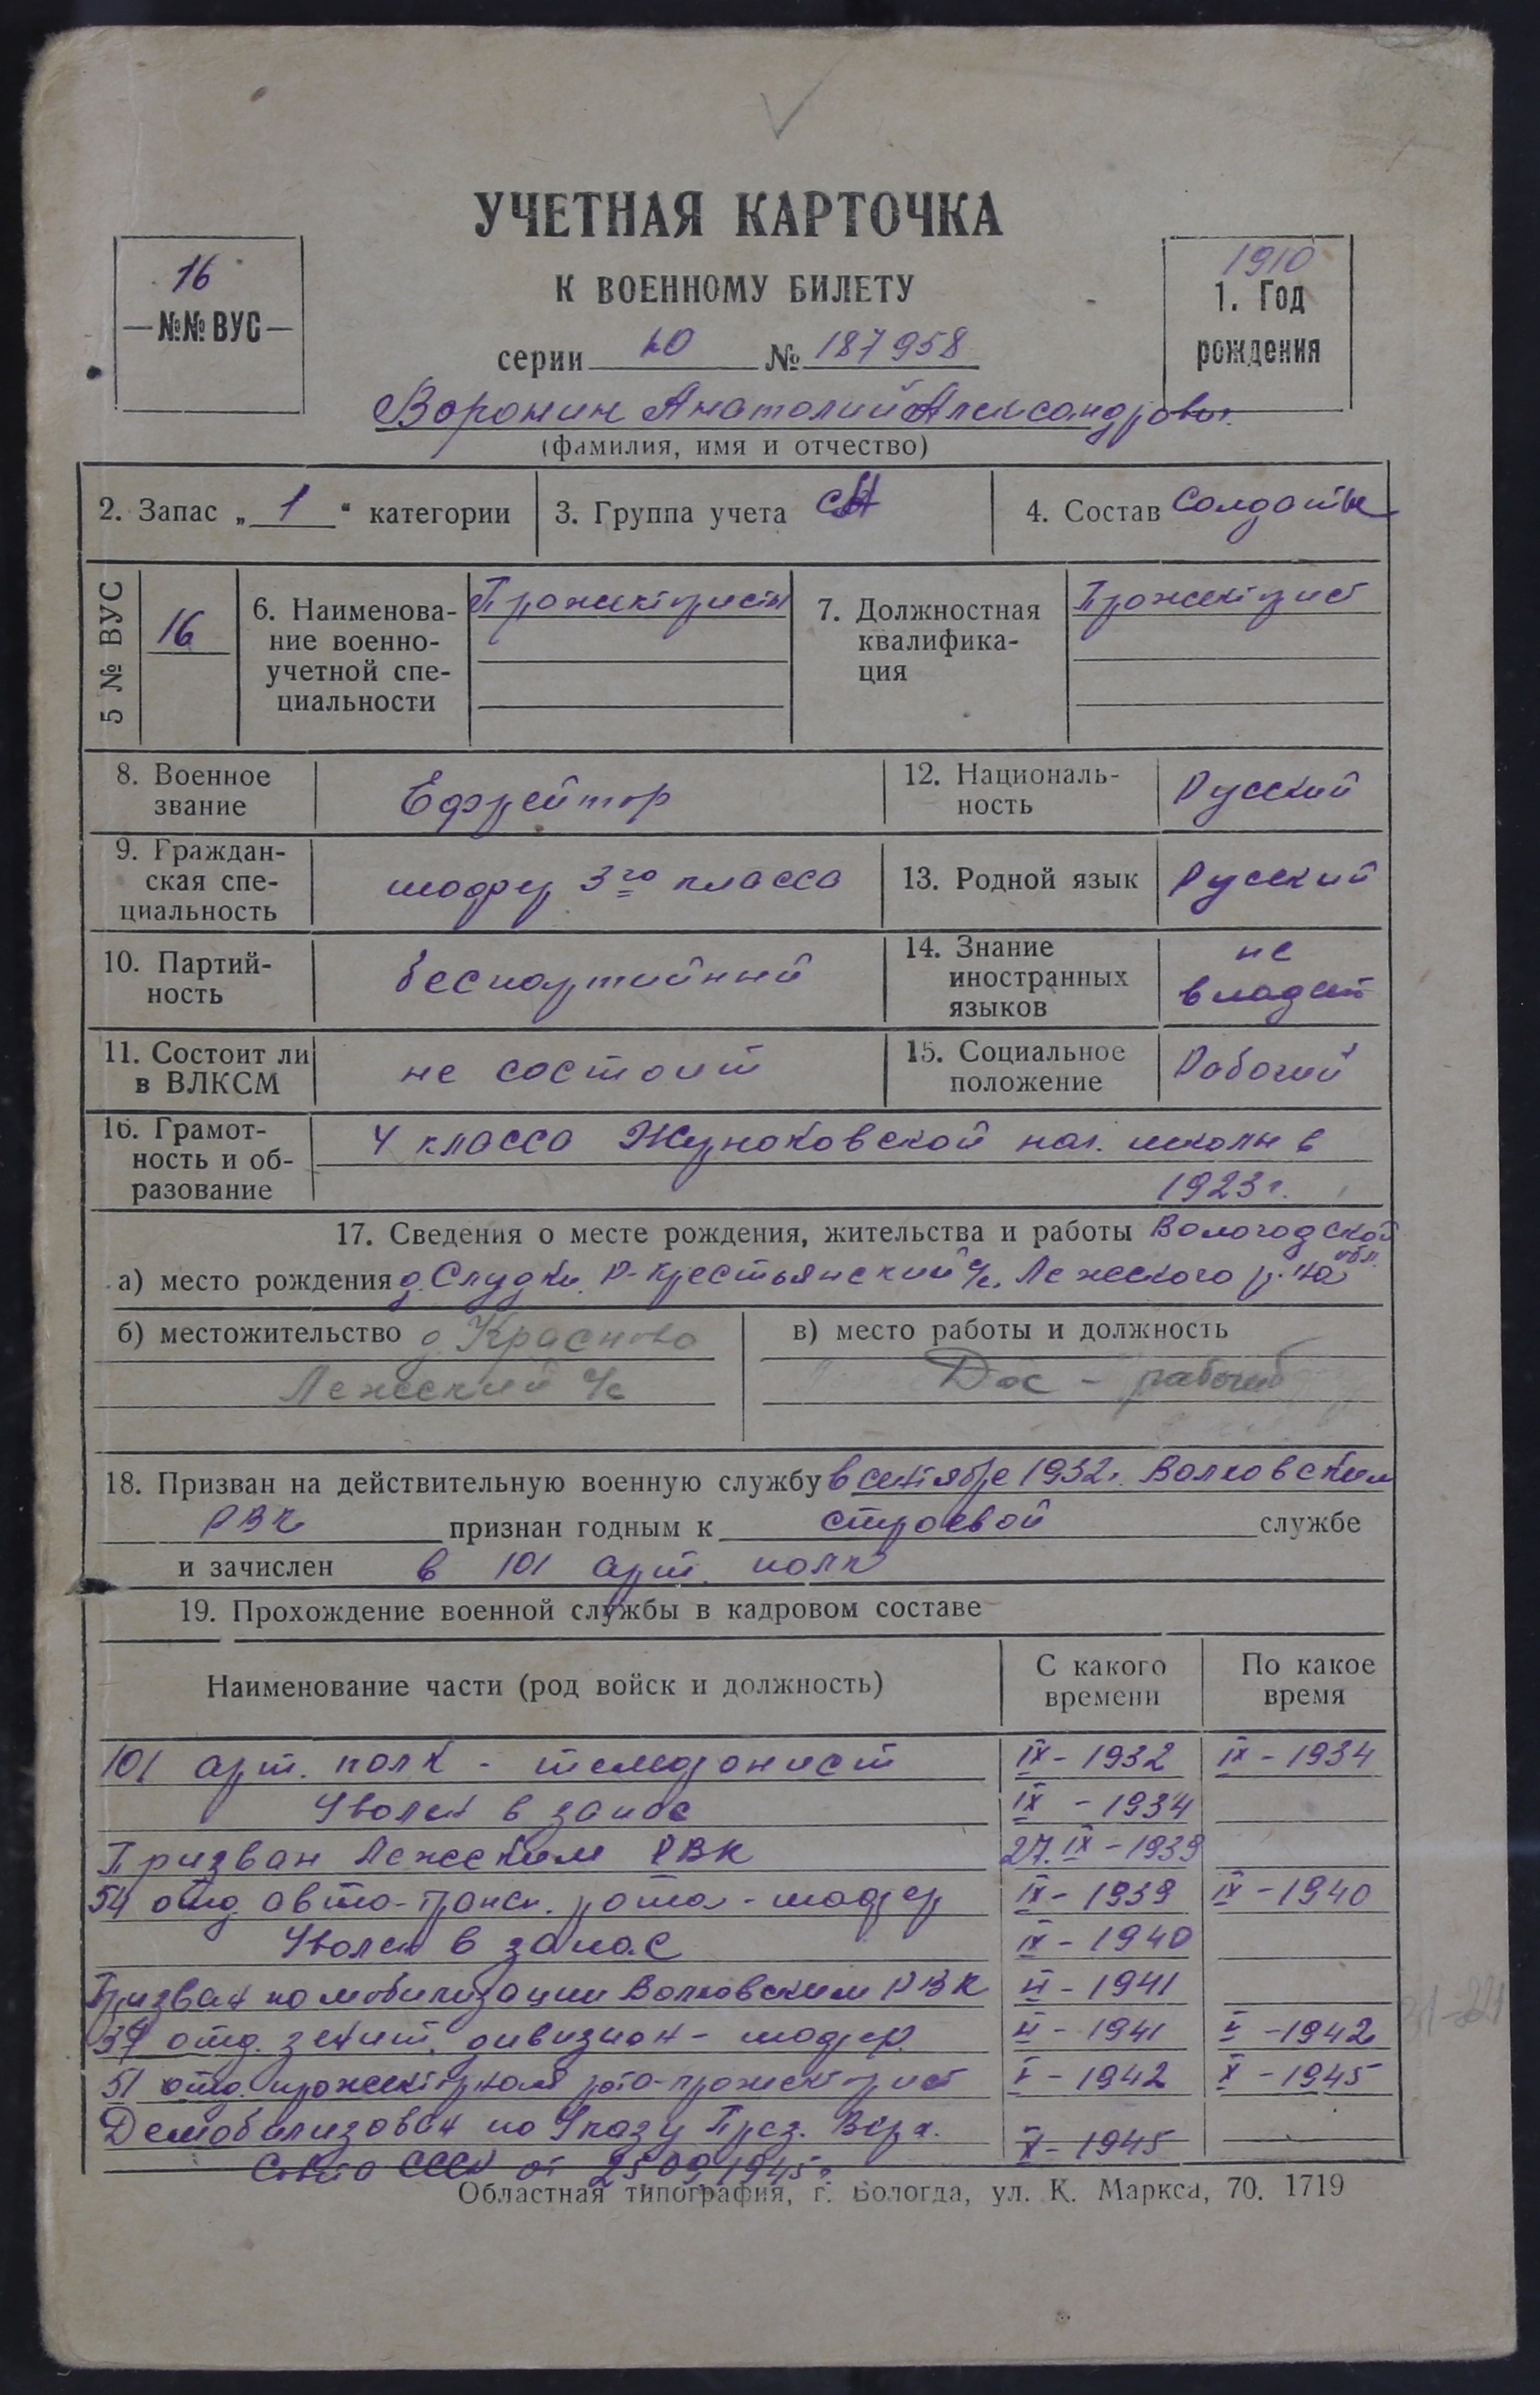 УЧЕТНАЯ КАРТОЧКА
К ВОЕННОМУ БИЛЕТУ
16
—№№ ВУС—
1910
1. Год
рождения
серии № 187958
Воронин Анатолий Александрович
(фамилия, имя и отчество)
2. Запас „ 1 “ категории
3. Группа учета СА
4. Состав Солдаты
5 № ВУС
16
6. Наименова-
ние военно-
учетной спе-
циальности
Прожектористы
7. Должностная
квалифика-
ция
Прожекторист
8. Военное
звание
Ефрейтор
12. Националь-
ность
Русский
9. Граждан-
ская спе-
циальность
шофер 3го класса
13. Родной язык
Русский
10. Партий-
ность
беспартийный
14. Знание
иностранных
языков
не
владеет
11. Состоит ли
в ВЛКСМ
не состоит
15. Социальное
положение
Рабочий
16. Грамот-
ность и об-
разование
4 класса нач. школы в
1923 г.
17. Сведения о месте рождения, жительства и работы Вологодской
обл.
а) место рождения д. Слудки Р-Крестьянский с/с. Лежского р-на
б) местожительство д Красново
Лежский с/с
в) место работы и должность
Док - рабочий
18. Призван на действительную военную службу в сентябре 1932 г. Волховским
РВК признан годным к строевой службе
и зачислен в 101 арт. полк
19. Прохождение военной службы в кадровом составе
Наименование части (род войск и должность)
С какого
времени
По какое
время
101 арт. полк - телефонист IX - 1932 IX - 1934
Уволен в запас IX - 1934
Призван Лежским РВК 27. IX - 1939
54 отд. авто-трансп. рота - шофер IX - 1939 IX - 1940
Уволен в запас IX - 1940
Призван по мобилизации Волховским РВК VI - 1941
37 отд. зенит. дивизион - шофер. VI - 1941 V - 1942
51 отд. прожекторная рота - прожекторист V - 1942 X - 1945
Демобилизован по Указу През. Верх. X - 1945
Совета СССР от 25.09.1945 г.
Областная типография, г. Вологда, ул. К. Маркса, 70. 1719